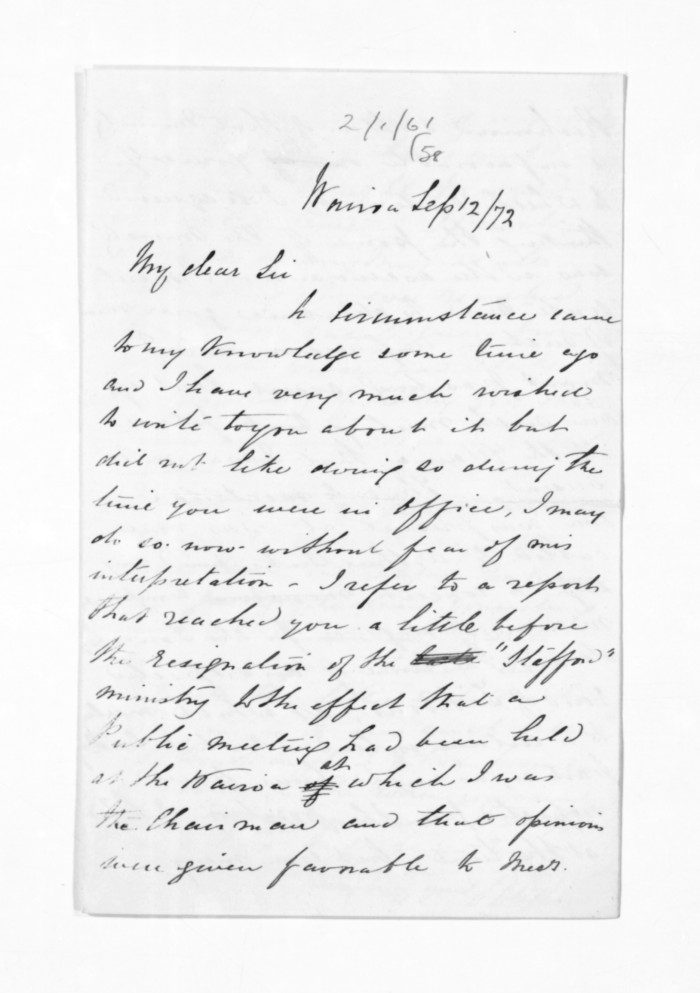 2/1/61
(58
Wairoa Sep 12/72
My dear Sir
A circumstance came
to my Knowledge some time ago
and I have very much wished
to write to you about it but
did not like doing so during the
time you were in office, I may
do so now without fear of mis
interpretation - I refer to a report
that reached you a little before
the resignation of the "Stafford"
ministry to the effect that a
Public meeting had been held
at the Wairoa at which I was
the Chairman and that opinions
were given favorable to Messrs.